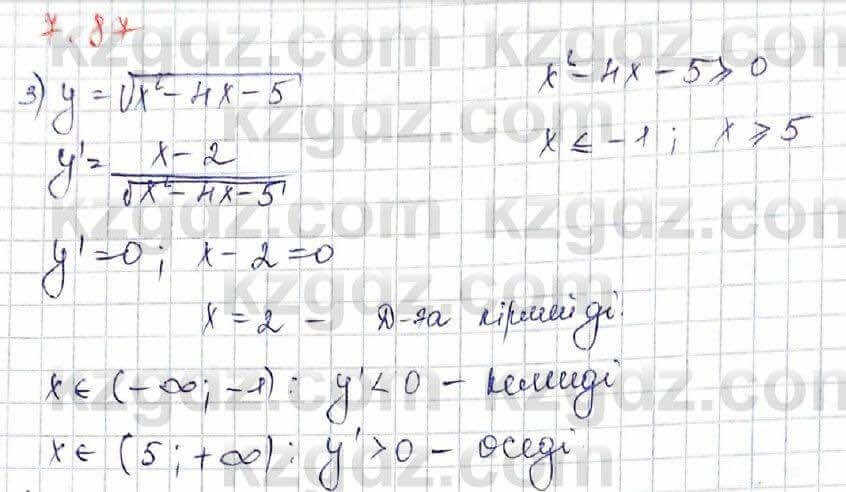 7.87
3) y = √x² - 4x - 5
x² - 4x - 5 ⩾ 0
y' = x - 2 / √x² - 4x - 5
x ⩽ -1 ; x ⩾ 5
y' = 0 ; x - 2 = 0
x = 2 - Д-га кірмейді.
x ∈ (-∞; -1) : y' < 0 - кемиді
x ∈ (5; +∞) : y' > 0 - өседі
kzgdz.com
kzgdz.com
kzgdz.com
kzgdz.com
kzgdz.com
kzgdz.com
kzgdz.com
kzgdz.com